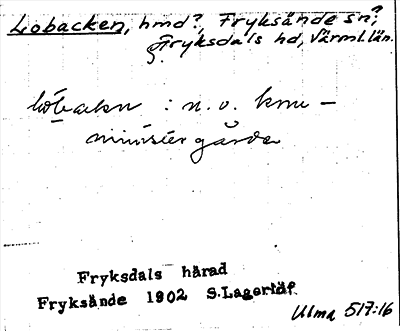 Lobacken, hmd?, Fryksände sn?
Fryksdals hd, Värml. län.
: n. v. kom-
ministergården
Fryksdals härad
Fryksände 1902 S.Lagerlöf.
Ulma 517:16